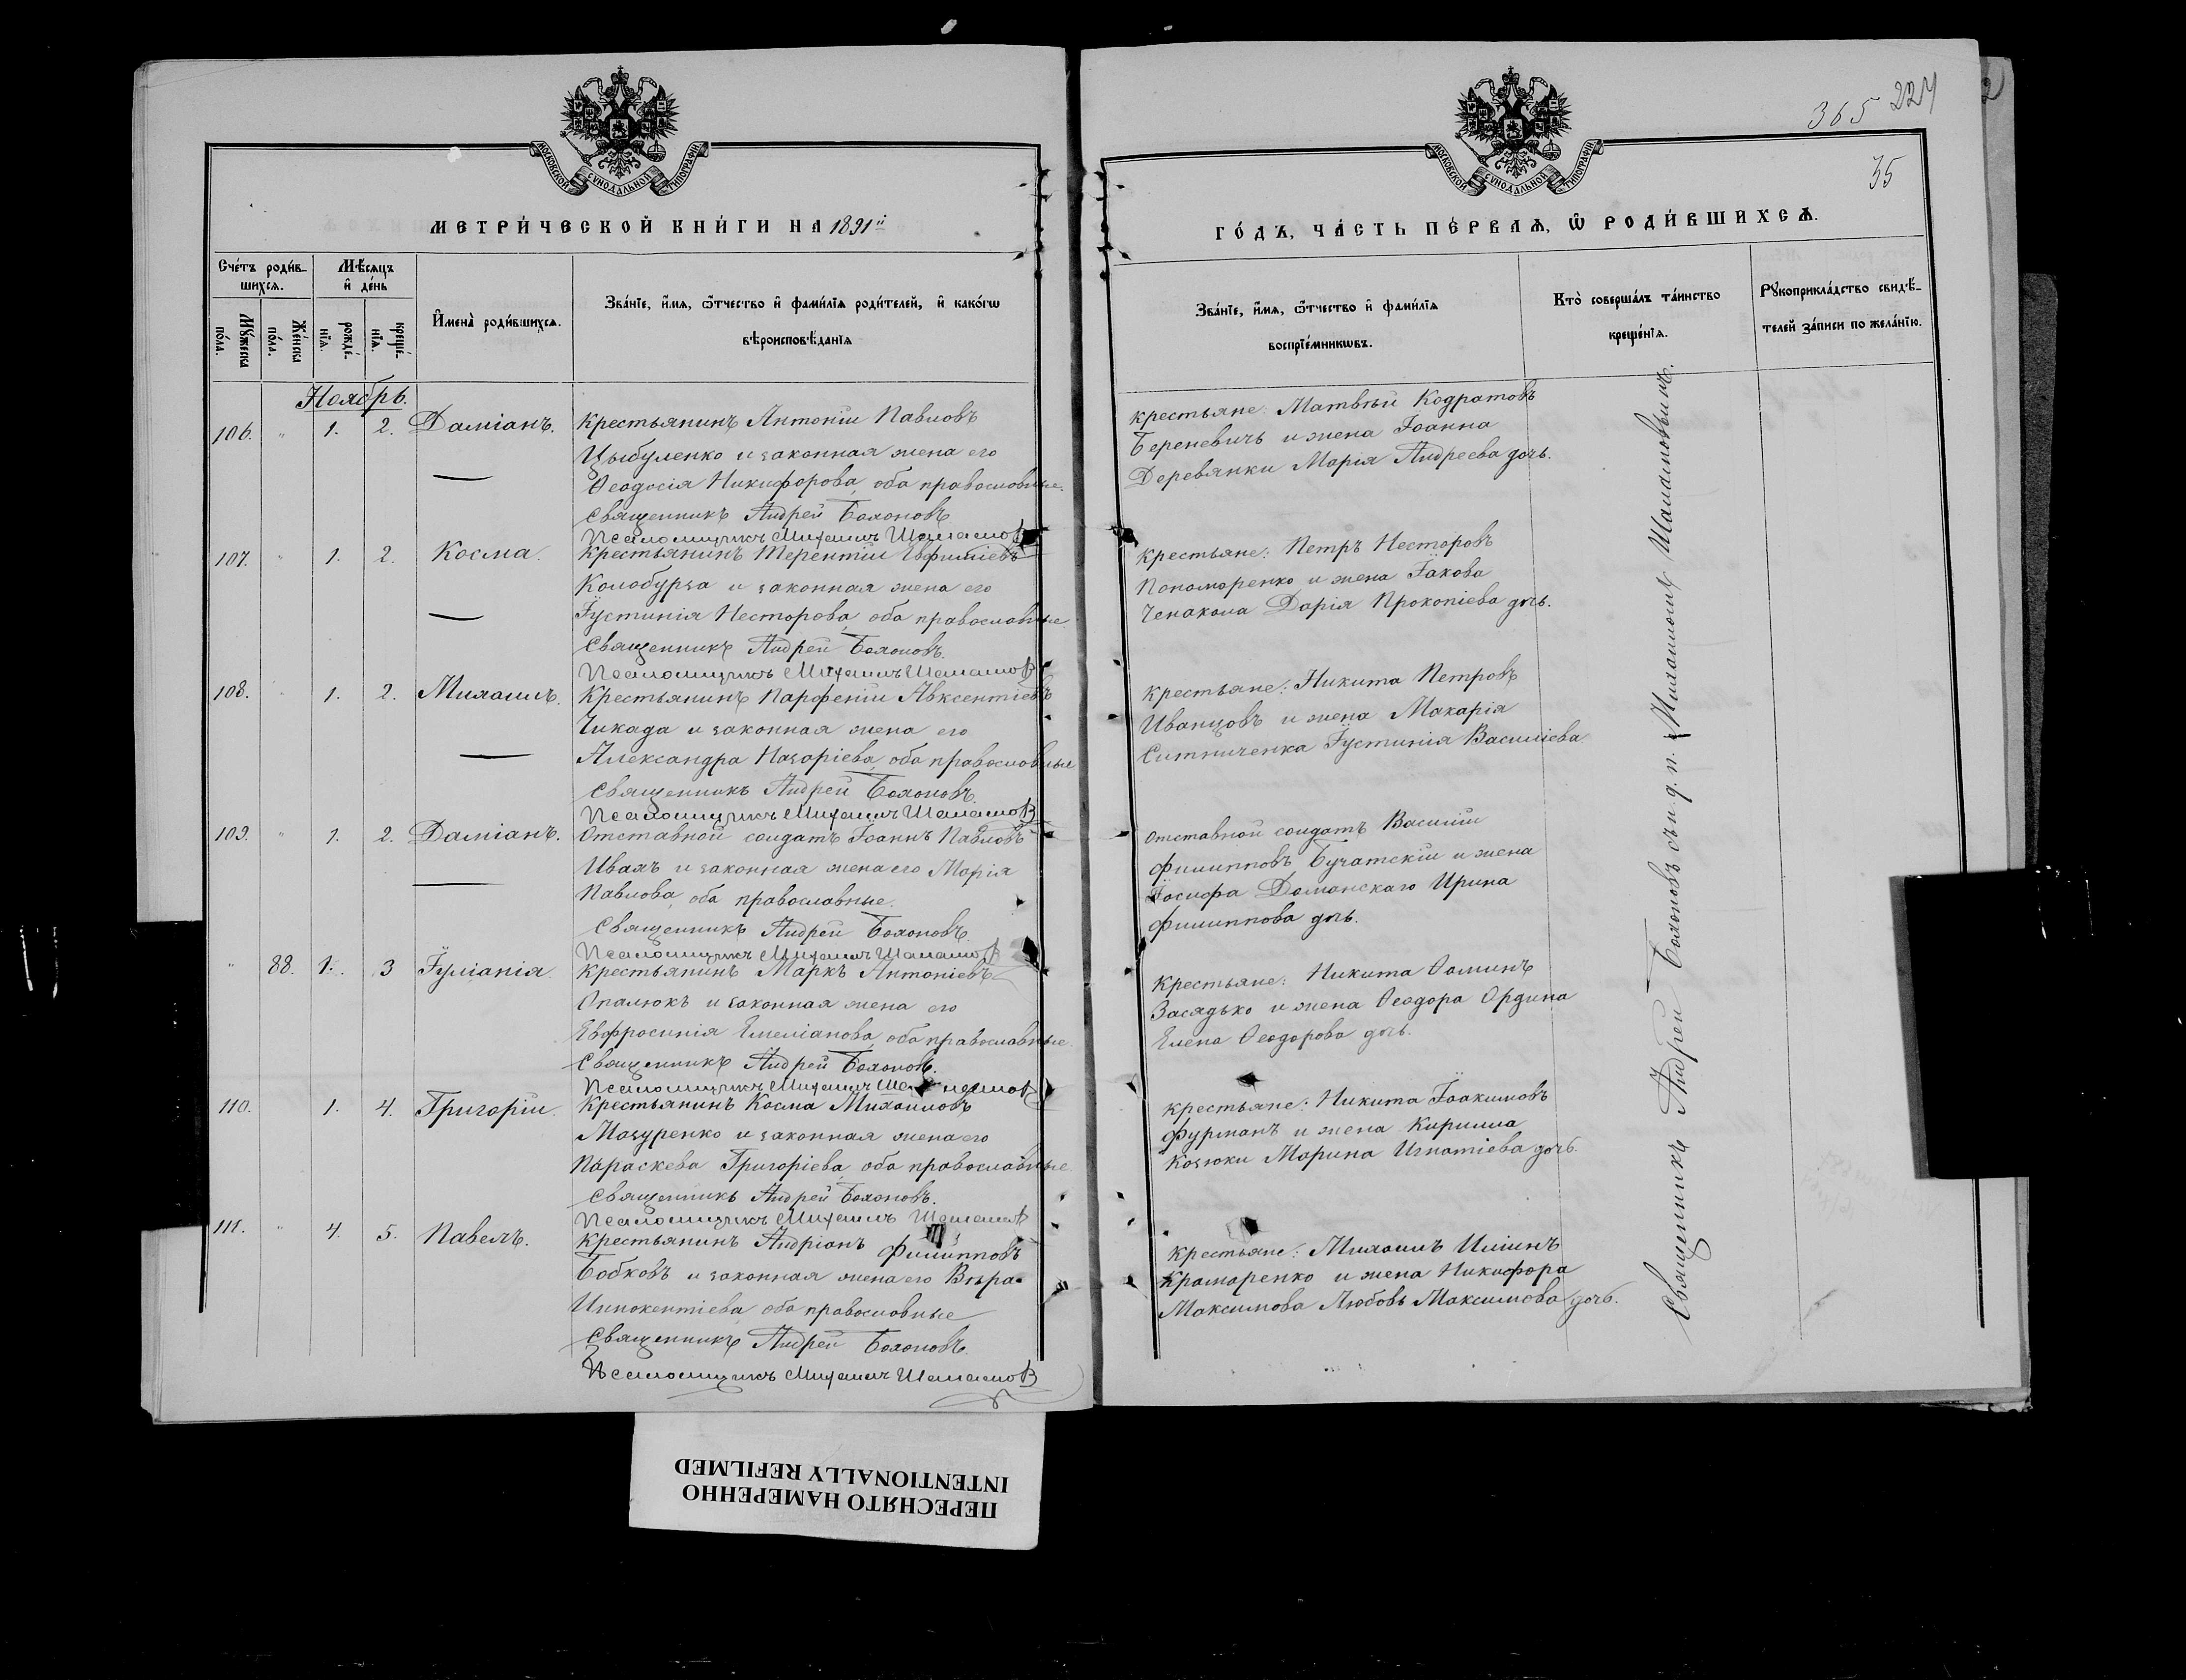 365 224
35
МОСКОВСКОЙ СѴНОДАЛЬНОЙ ТИПОГРАФІИ
МЕТРИ́ЧЕСКОЙ КНИ́ГИ НА 1891й
Сче́тъ роди́в-
шихсѧ.
Мꙋ́жеска
по́ла.
Же́нска
по́ла.
Мѣ́сѧцъ
и҆ де́нь
рожде́-
нїѧ.
креще́-
нїѧ.
И҆мена̀ роди́вшихсѧ.
Зва́нїе, и҆́мѧ, ѻ҆́тчество и҆ фами́лїѧ роди́телей, и҆ како́гѡ
вѣ́роисповѣ́данїѧ
Ноябрь.
106. " 1. 2. Даміанъ. Крестьянинъ Антоній Павловъ
Цыбуленко и законная жена его
Ѳеодосія Никифорова, оба православные.
Священникъ Андрей Болоновъ
Псаломщикъ Михаилъ
107. " 1. 2. Косма. Крестьянинъ Терентій Евфиміевъ
Колобурза и законная жена его
Іустинія Несторова, оба православные
Священникъ Андрей Болоновъ.
Псаломщикъ Михаилъ
108. " 1. 2. Михаилъ. Крестьянинъ Парфеній Авксентіевъ
Чикада и законная жена его
Александра Назаріева, оба православные
Священникъ Андрей Болоновъ.
Псаломщикъ Михаилъ
109. " 1. 2. Даміанъ. Отставной солдатъ Іоаннъ Павловъ
и законная жена его Марія
Павлова, оба православные.
Священникъ Андрей Болоновъ.
Псаломщикъ Михаилъ
" 88. 1. 3 Іуліанія. Крестьянинъ Маркъ Антоніевъ
Опалюкъ и законная жена его
Евфросинія Емеліанова, оба православные.
Священникъ Андрей Болоновъ.
Псаломщикъ Михаилъ
110. 1. 4. Григорій. Крестьянинъ Косма Михаиловъ
Мазуренко и законная жена его
Параскева Григоріева оба православные
Священникъ Андрей Болоновъ.
Псаломщикъ Михаилъ
111. " 4. 5. Павелъ. Крестьянинъ Андріанъ Филипповъ
Бобковъ и законная жена его Вѣра
Иннокентіева, оба православные
Священникъ Андрей Болоновъ.
Псаломщикъ Михаилъ
МОСКОВСКОЙ СѴНОДАЛЬНОЙ ТИПОГРАФІИ
ГО́ДЪ, ЧА́СТЬ ПЕ́РВАѦ, Ѡ҆ РОДИ́ВШИХСѦ.
Зва́нїе, и҆́мѧ, ѻ҆́тчество и҆ фами́лїѧ
воспрїе́мникѡвъ.
Кто̀ соверша́лъ та́инство
креще́нїѧ.
Рꙋкоприкла́дство свидѣ́-
телей за́писи по жела́нїю.
крестьяне: Матвѣй Кодратовъ
Береневичъ и жена Іоанна
Деревянки Марія Андреева дочь.
Крестьяне: Петръ Несторовъ
Пономоренко и жена Іакова
Дарія Прокопіева дочь.
крестьяне: Никита Петровъ
Иванцовъ и жена Макарія
Ситниченка Іустинія Василіева.
Отставной солдатъ Василій
Филипповъ Бучатскій и жена
Іосифа Доманскаго Ирина
Филиппова дочь.
Крестьяне: Никита Ѳоминъ
Засядько и жена Ѳеодора Ордина
Елена Ѳеодорова дочь.
крестьяне: Никита Іоакимовъ
Фурманъ и жена Кирилла
Козюки Марина Игнатіева дочь.
крестьяне: Михаилъ Иліинъ
Краморенко и жена Никифора
Максимова Любовь Максимова дочь.
Священникъ Андрей Болоновъ съ и. д. п. Михаиломъ
ПЕРЕСНЯТО НАМЕРЕННО
INTENTIONALLY REFILMED